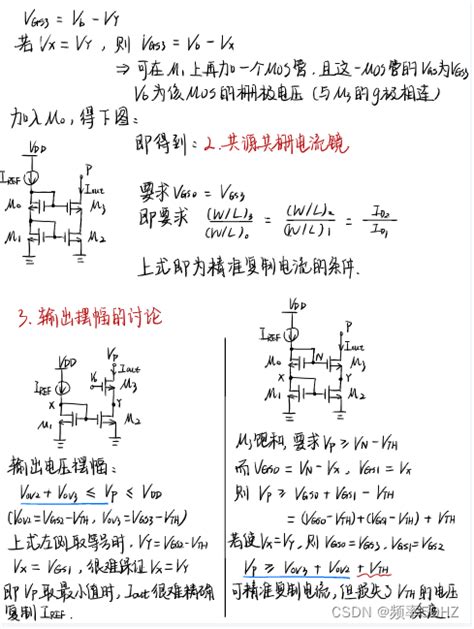 VGS3 = Vb - VY
若 VX = VY , 则 VGS3 = Vb - VX
⇒ 可在 M1 上再加一个MOS管. 且这一MOS管的VGS为VGS3
Vb 为该MOS的栅极电压 (与M3的g极相连)
加入M0, 得下图:
即得到: 2. 共源共栅电流镜
VDD
P
IREF
Iout
M0
M3
M1
M2
要求 VGS0 = VGS3
即要求 (W/L)3/(W/L)0 = (W/L)2/(W/L)1 = ID2/ID1
上式即为精准复制电流的条件.
3. 输出摆幅的讨论
VDD
VP
Iout
IREF
Vb
M3
X
Y
M1
M2
输出电压摆幅:
VOV2 + VOV3 ≤ VP ≤ VDD
(VOV2 = VGS2 - VTH, VOV3 = VGS3 - VTH)
上式左侧取等号时, VY = VGS2 - VTH
VX = VGS1, 很难保证 VX = VY
即 VP 取最小值时, Iout 很难精确
复制 IREF.
VDD
P
IREF
Iout
M0
N
M3
X
Y
M1
M2
M3饱和, 要求 VP ≥ VN - VTH
而 VGS0 = VN - VX , VGS1 = VX
则 VP ≥ VGS0 + VGS1 - VTH
= (VGS0 - VTH) + (VGS1 - VTH) + VTH
若使 VX = VY, 则 VGS0 = VGS3, VGS1 = VGS2
VP ≥ VOV3 + VOV2 + VTH
可精准复制电流, 但损失了 VTH 的电压
余度.